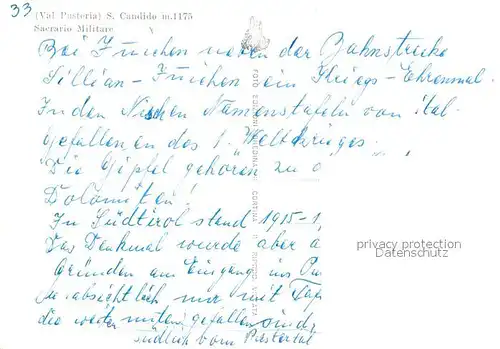 33
(Val Pusteria) S. Candido m. 1175
Sacrario Militare
Bei Innichen neben der Bahnstrecke
Sillian - Innichen ein Kriegs-Ehrenmal.
In den Nischen Namenstafeln von ital.
Gefallenen des 1. Weltkrieges.
Die Gipfel gehören zu d
Dolomiten!
In Südtirol stand 1915-1
Das Denkmal wurde aber a
Gründen am Eingang ins Pu
absichtlich nur mit Taf
die weiter unten gefallen sind
südlich vom Pustertal
privacy protection
Datenschutz